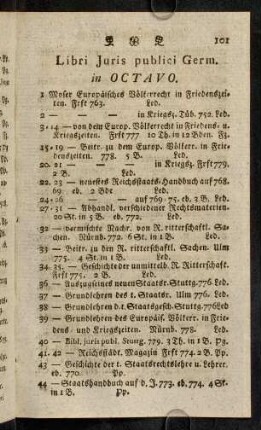 101
Libri Juris publici Germ.
in OCTAVO.
1 Moser Europäisches Völkerrecht in Friedenszei-
ten. Frft 763. Led.
2 — — in Kriegsz. Tüb. 752. Led.
3-14 — von dem Europ. Völkerrecht in Friedens- u.
Kriegszeiten. Frft 777 10 Th. in 12 Bden. Fz.
15-19 — Beitr. zu dem Europ. Völkerr. in Frie-
denszeiten. 778. 5 B. Led.
20. 21 — — in Kriegsz. Frft 779.
2 B. Led.
22. 23 — neuestes Reichsstaats-Handbuch auf 768.
69. eb. 2 Bde Led.
24-26 — — auf 769-75. eb. 2 B. Led.
27-31 — Abhandl. verschiedener Rechtsmaterien.
20 St. in 5 B. eb. 772. Led.
32 — vermischte Nachr. von R. ritterschaftl. Sa-
chen. Nürnb. 772. 6 St. in 1 B. Led.
33 — Beitr. zu den R. ritterschaftl. Sachen. Ulm
775. 4 St. in 1 B. Led.
34. 35. — Geschichte der unmittelb. R. Ritterschaft.
Frft 775. 2 B. Led.
36 — Auszug seines neuen Staatsr. Stuttg. 776 Led.
37 — Grundlehren des t. Staatsr. Ulm 776. Led.
38 — Grundlehren der t. Staatsgesch. Stuttg. 776 Led
39 — Grundlehren des Europäis. Völkerr. in Frie-
dens- und Kriegszeiten. Nürnb. 778. Led.
40 — Bibl. juris publ. 3 Th. in 1 B. Pg.
41. 42 — Reichsstädt. Magazin Frft 774 2 B. Pp.
43 — Geschichte der t. Staatsrechtslehre u. Lehrer.
eb. 770 Led.
44 — Staatshandbuch auf d. J. 773. eb. 774. 4 St.
in 1 B. Pp.